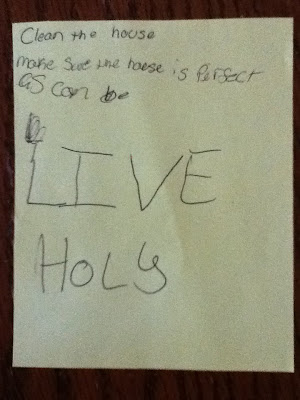 Clean the house
make sure the house is perfect
as can be
LIVE
HOLY